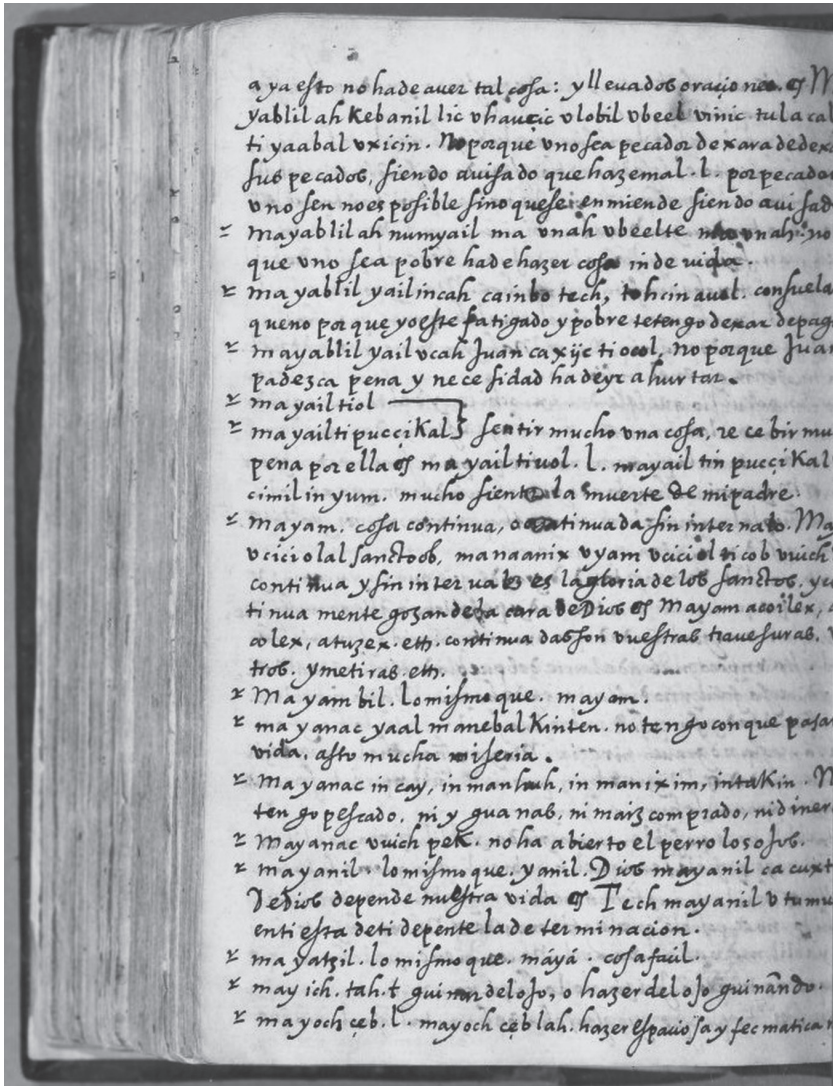 a ya esto no hade aver tal cosa: y llevados oraciones. ꝯ M
yablil ah Kebanil lic vhauçic vlobil vbeel vinic tula cal
ti yaabal vxicin. No porque uno sea pecador dexara dedexa
sus pecados, siendo avisado que haze mal. l. por pecador
uno sea noes posible sino quese enmiende siendo avisad
Mayablil ah numyail ma vnah vbeelte vnah. no
que uno sea pobre hade hazer cosa indevida.
ma yablil yailincah cainbo tech, tohcin auol. consuela
queno por que yoeste fatigado y pobre tetengo dexar depag
mayablil yail vcah Juan caxijc ti ocol, No porque Juan
padezca pena y necesidad hadeyr a hurtar.
ma yailtiol
ma yailti pucçiKal sentir mucho una cosa, recebir mu
pena por ella ꝯ ma yail tiuol. l. mayail tin pucçiKal
cimil in yum. mucho siento la muerte de mi padre.
mayam. cosa continua, o continuada sin intervalo. Ma
vciciolal sanctoob, manaanix vyam vciciol ticob vuich
continua y sin intervalo es la gloria de los sanctos, y co
tinua mente gozan dela cara de Dios ꝯ Mayam acoilex,
colex, atuzex. eth. continua dasson vuestras travesuras,
tros. ymetiras. eth.
Mayambil. lo mismo que. mayam.
ma yanac yaal manebal Kinten. no tengo con que pasar
vida. asto mucha miseria.
Ma yanac in cay, in manhuh, in manixim, intakin. N
tengo pescado, ni yguanas, ni maiz comprado, ni diner
Mayanac vuich peK. no ha abierto el perro los ojos.
mayanil. lo mismo que. yanil. Dios mayanil ca cuxt
De Dios depende nuestra vida ꝯ Tech mayanil v tumu
enti esta deti depente la determinacion.
ma yatzil. lo mismo que. máyá. cosa facil.
may ich. tah. t guiñar delojo, o hazer del ojo guiñando.
mayoch çeb. l. mayoch çeblah. hazer espaciosa y fecmatica